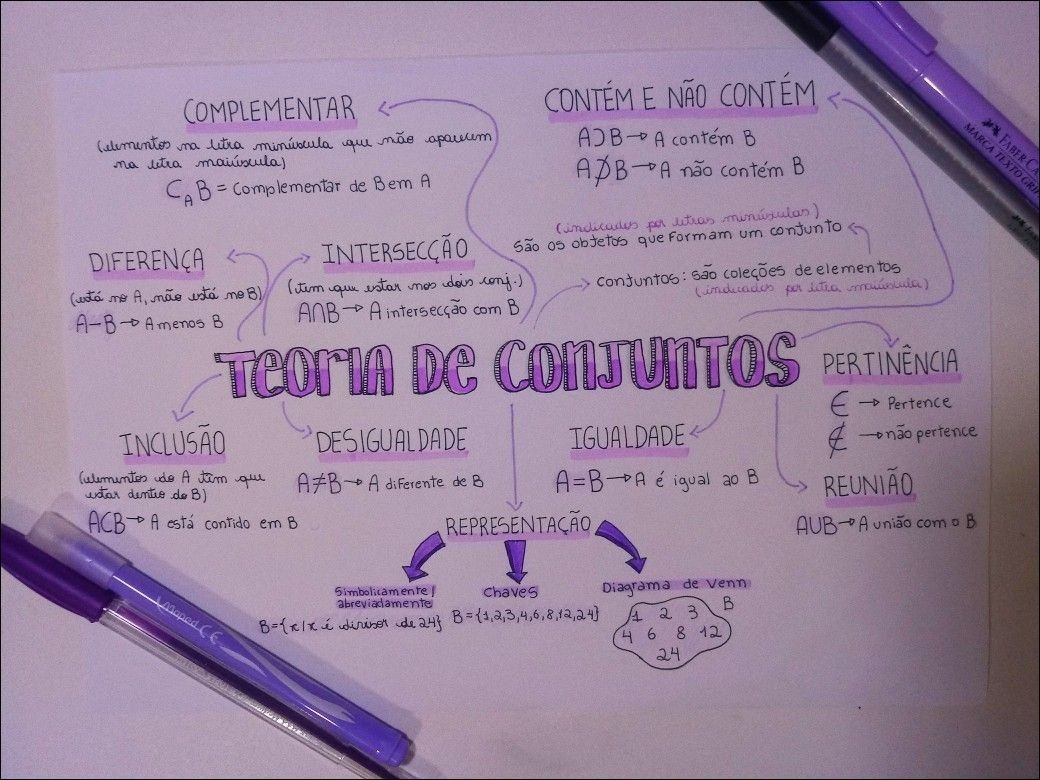 COMPLEMENTAR
(elementos na letra minúscula que não aparecem
na letra maiúscula)
C_A B = Complementar de B em A
CONTÉM E NÃO CONTÉM
A⊃B → A contém B
A⊅B → A não contém B
(indicados por letras minúsculas)
São os objetos que formam um conjunto
conjuntos: são coleções de elementos
(indicados por letra maiúscula)
DIFERENÇA
(está no A, não está no B)
A-B → A menos B
INTERSECÇÃO
(tem que estar nos dois conj.)
A∩B → A intersecção com B
TEORIA DE CONJUNTOS
PERTINÊNCIA
∈ → Pertence
∉ → não pertence
INCLUSÃO
(elementos do A tem que
estar dentro do B)
A⊂B → A está contido em B
DESIGUALDADE
A≠B → A diferente de B
IGUALDADE
A=B → A é igual ao B
REUNIÃO
A∪B → A união com o B
REPRESENTAÇÃO
Simbolicamente/
abreviadamente
B={x/x é divisor de 24}
Chaves
B={1,2,3,4,6,8,12,24}
Diagrama de Venn
B
1 2 3
4 6 8 12
24
FABER-CA
MARCA TEXTO GRIP
Maped CE